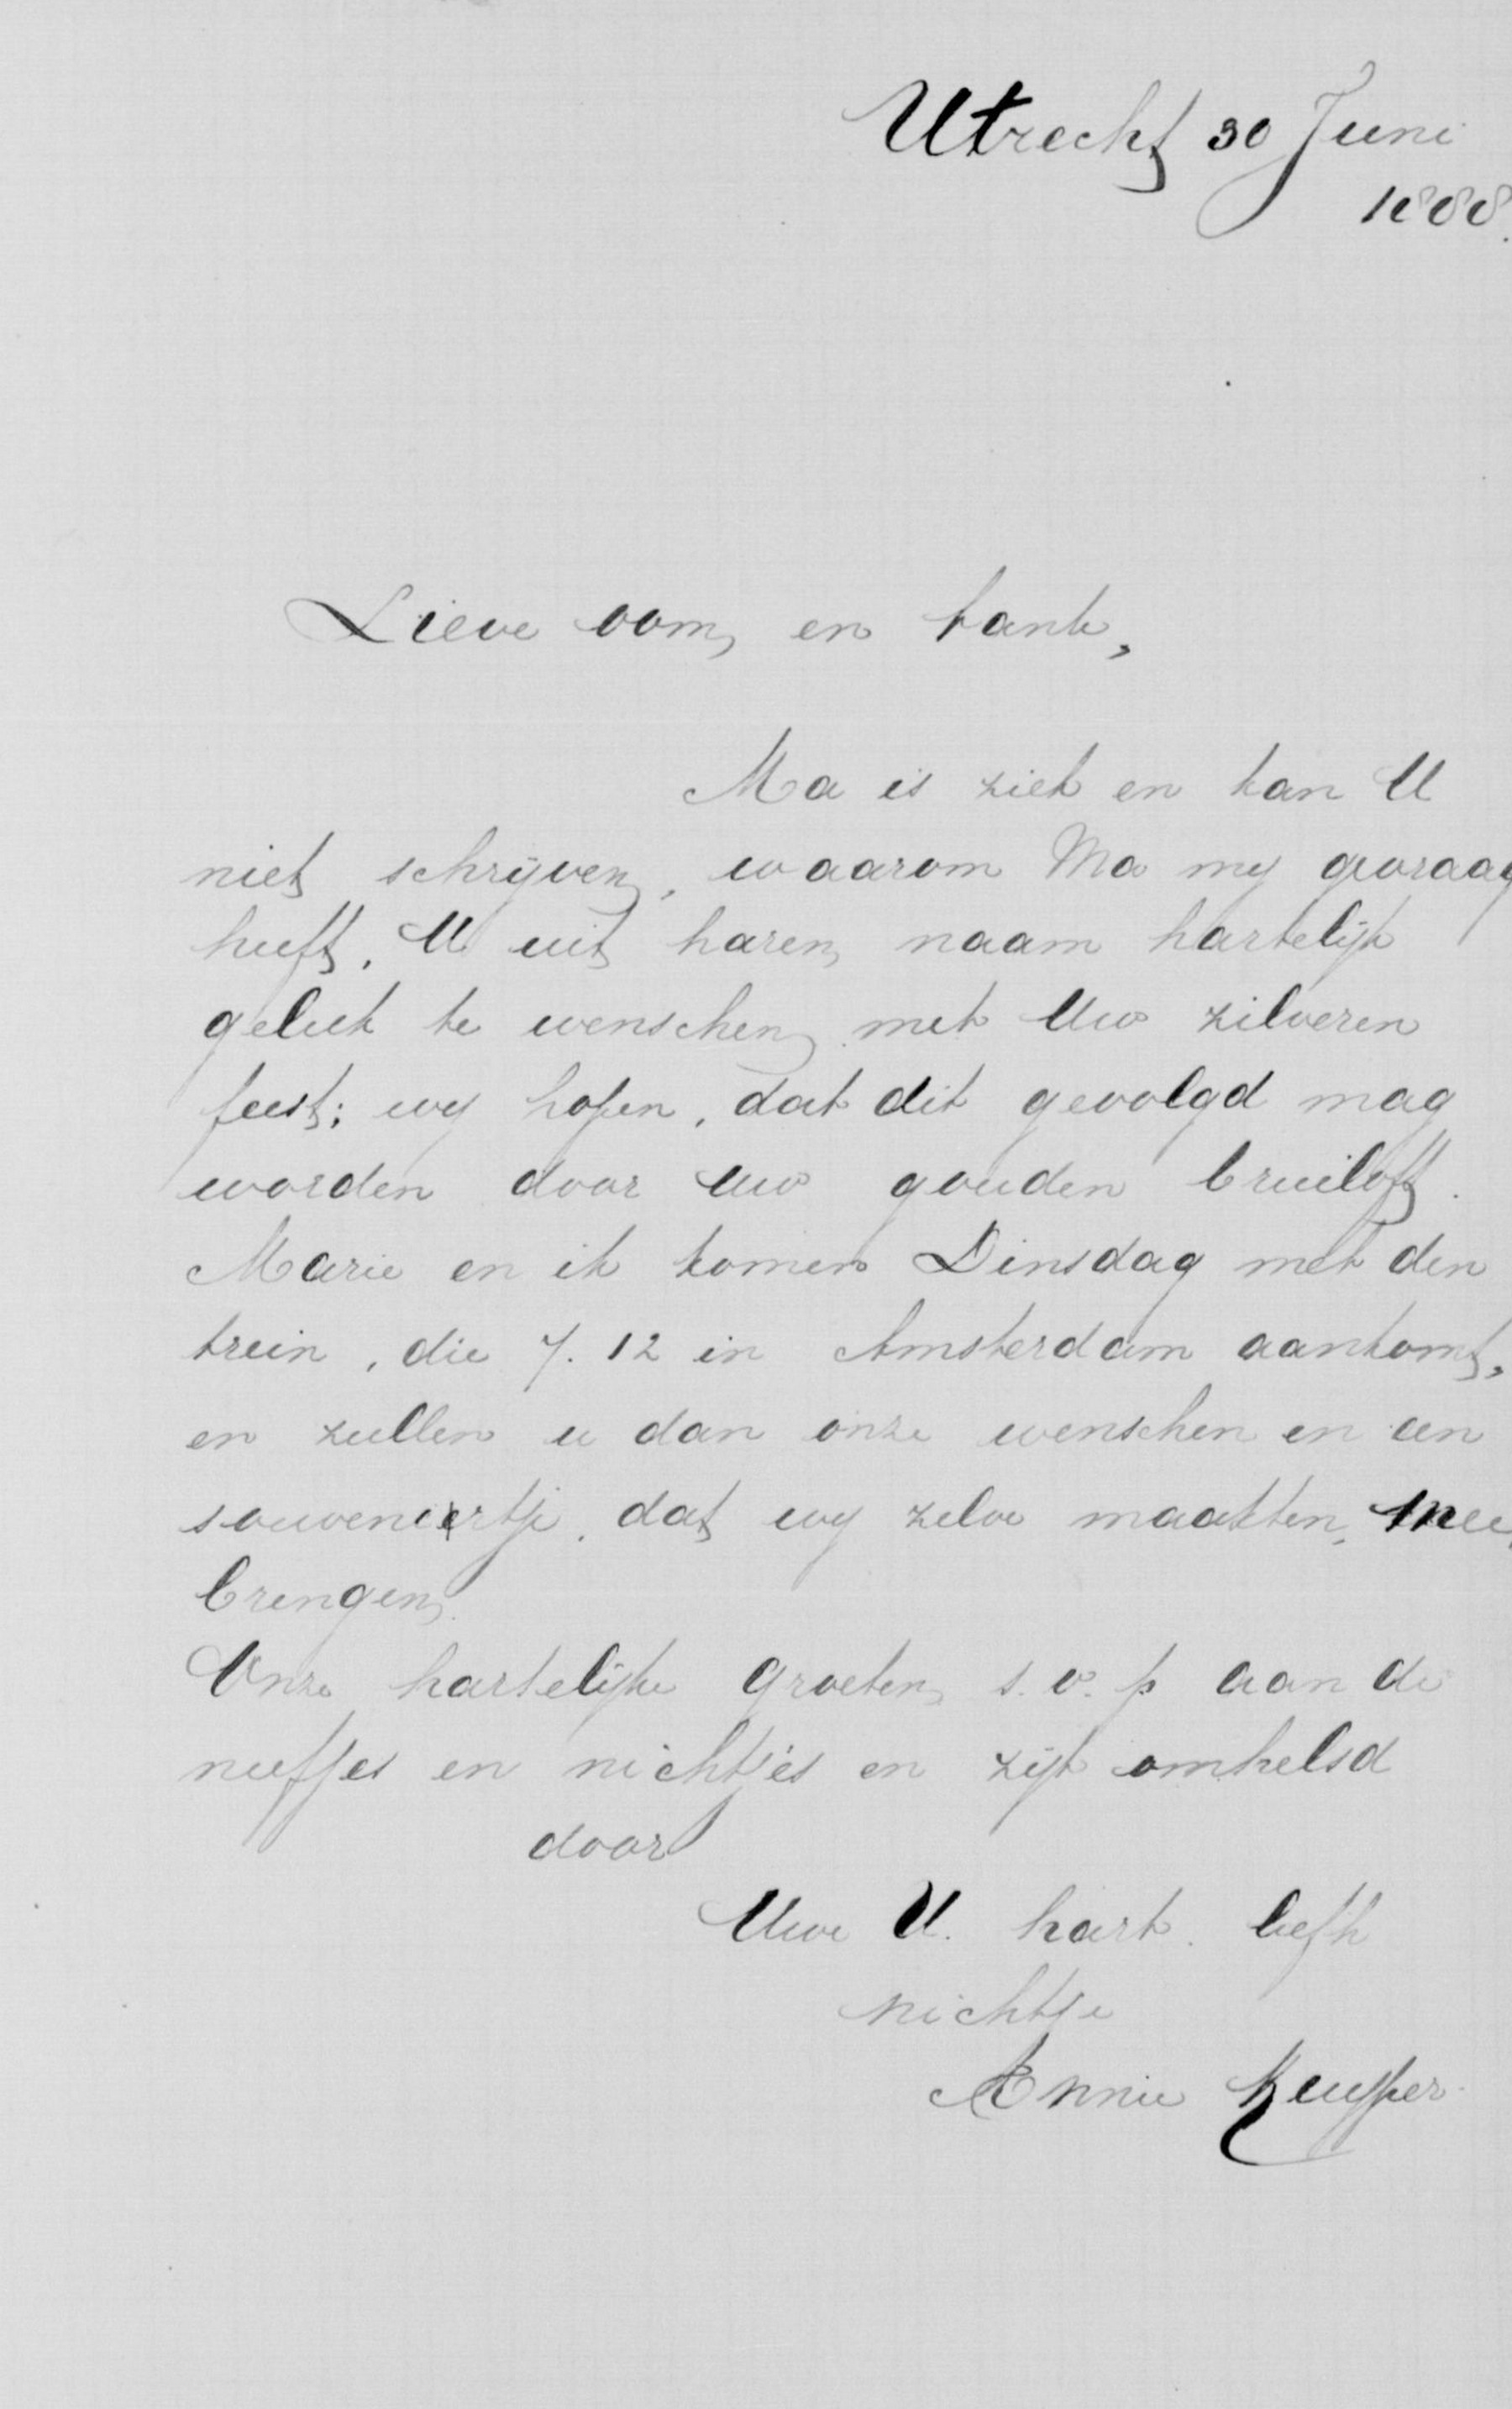 Utrecht 30 Juni
1888.
Lieve oom, en tante,
Ma is ziek en kan U
niet schrijven, waarom Ma my gevraag
heeft, U uit haren naam hartelijk
geluk te wenschen met Uw zilveren
feest; wy hopen, dat dit gevolgd mag
worden door uw gouden bruiloft.
Marie en ik komen Dinsdag met den
trein, die 7.12 in Amsterdam aankomt,
en zullen u dan onze wenschen en een
souveniertje, dat wy zelve maakten, mee
brengen.
Onze hartelijke groeten s.v.p aan de
neefjes en nichtjes en zijt omhelsd
door
Uwe U. hart. liefh
nichtje
Annie Kuyper.